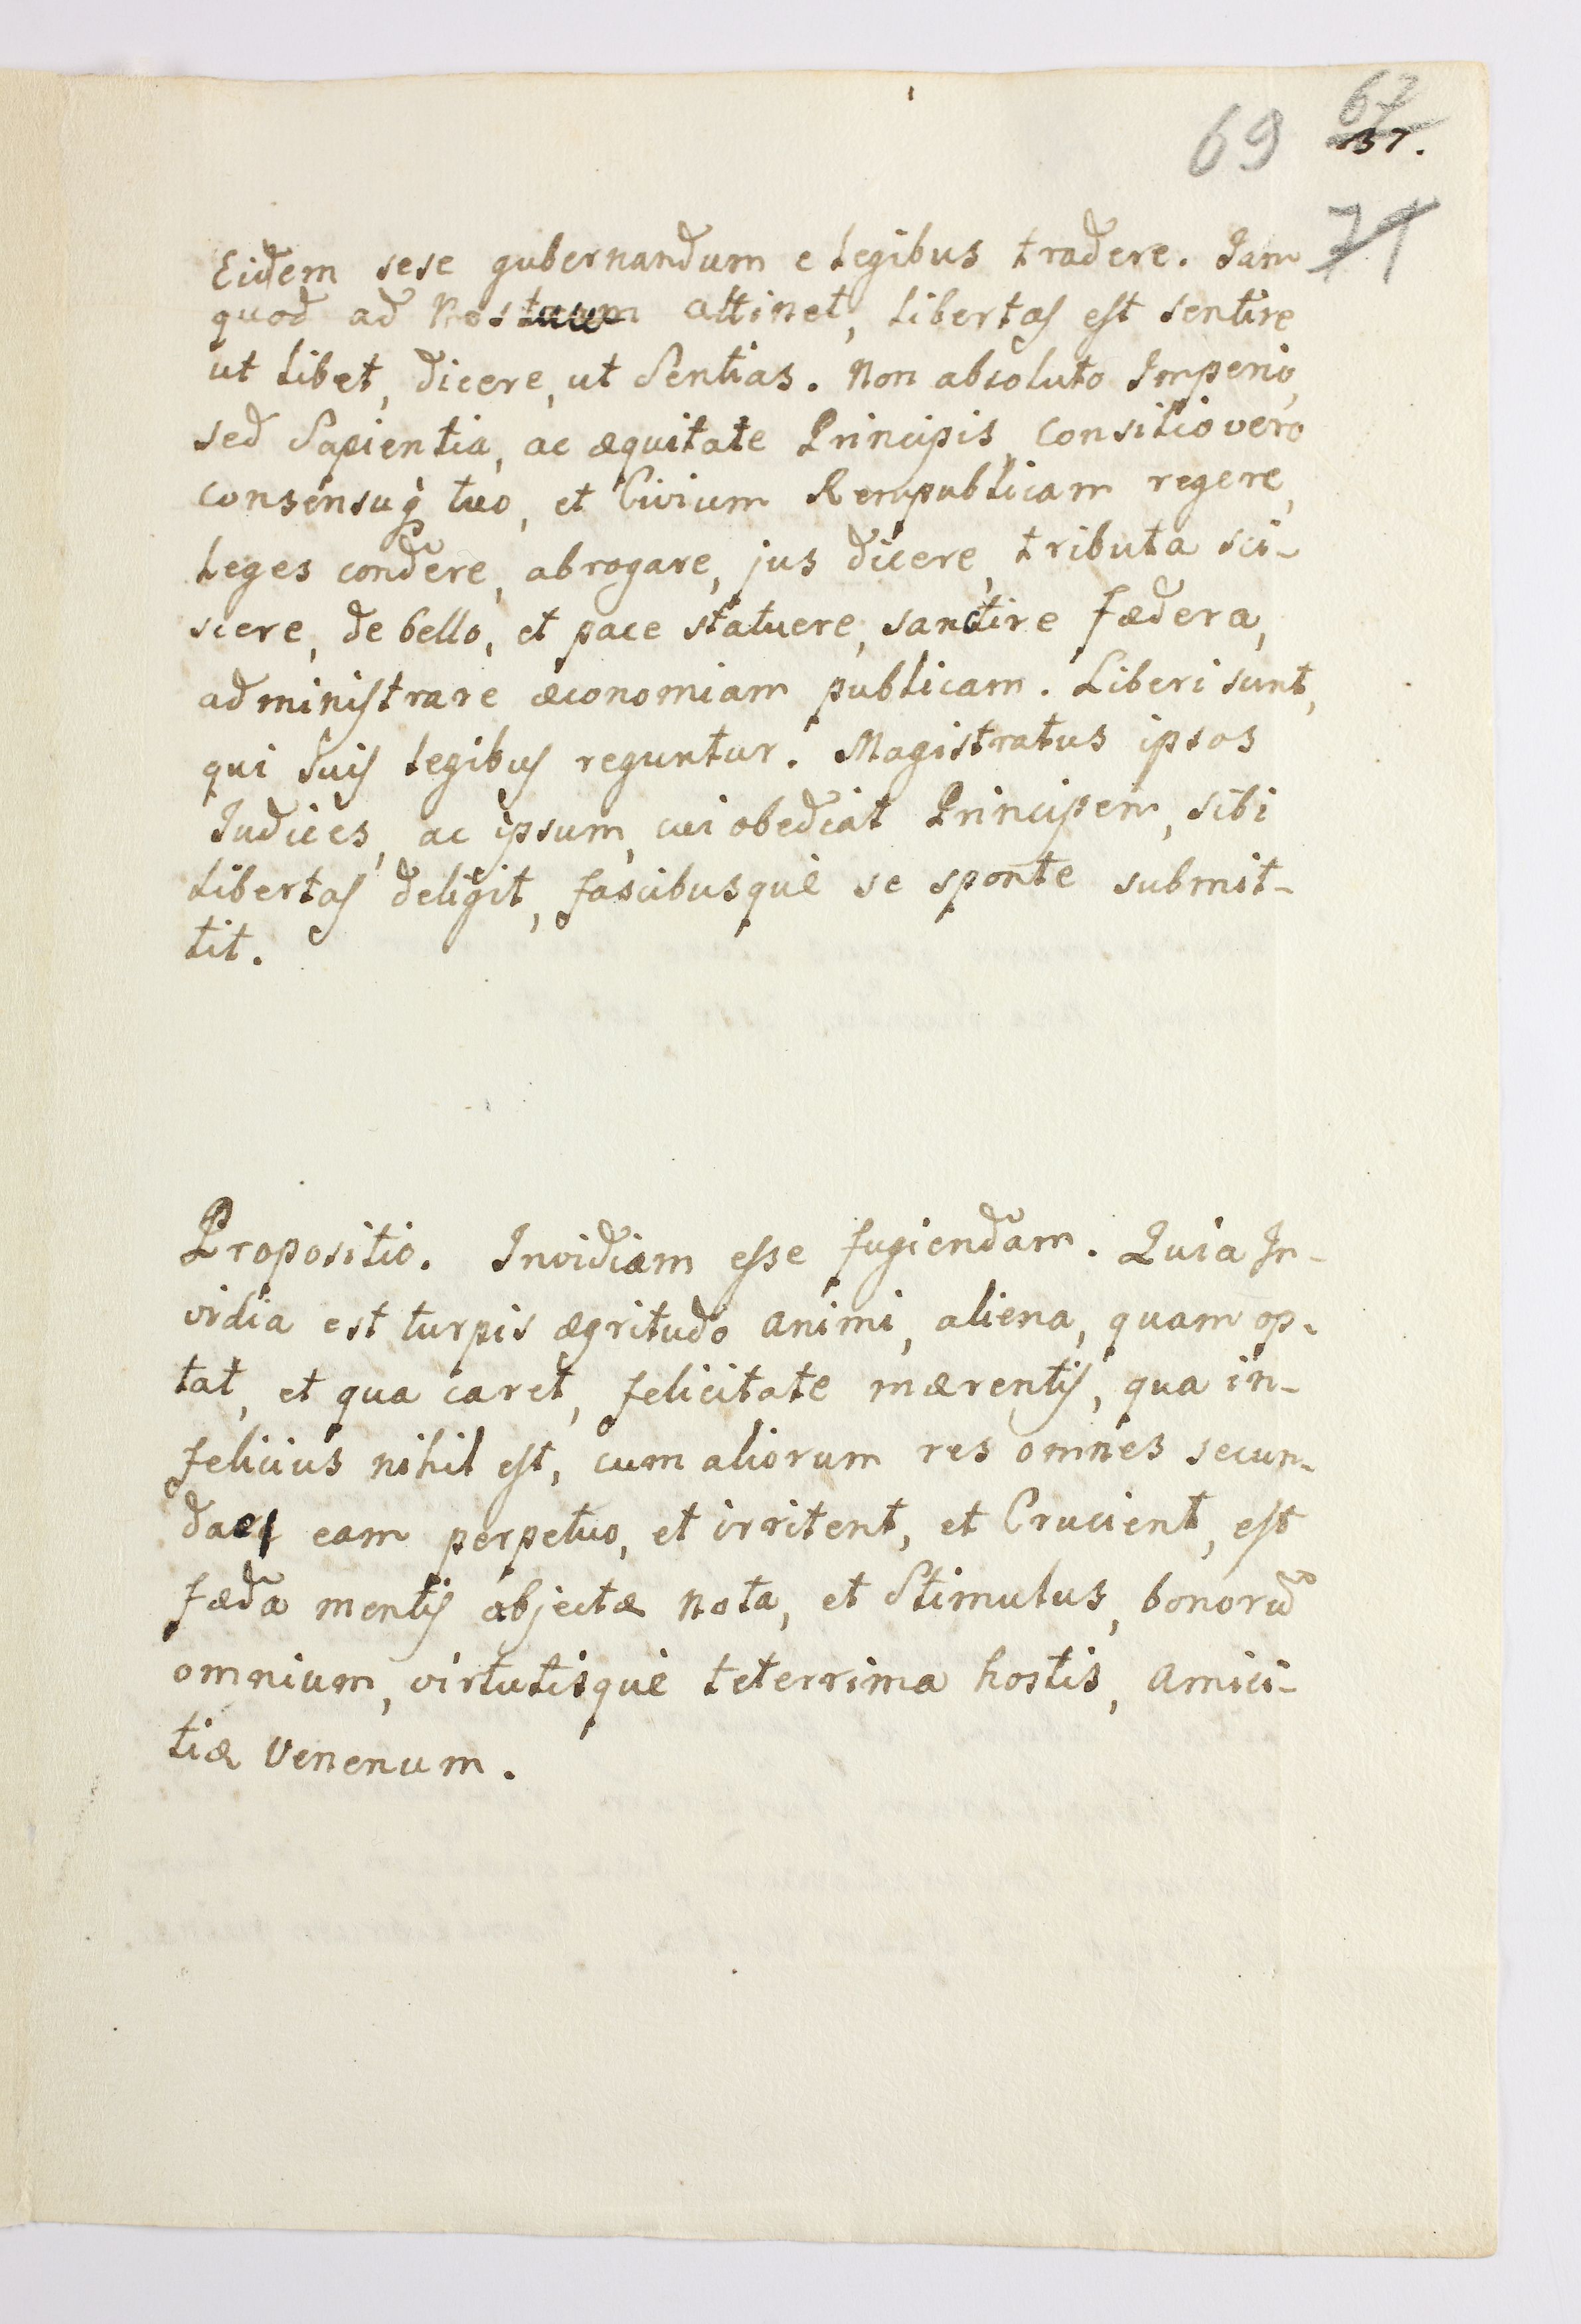 67
69 137.
71
Eidem sese gubernandum e legibus tradere. Jam
quod ad Nos attinet, libertas est sentire
ut libet, dicere, ut Sentias. Non absoluto Imperio,
sed Sapientia, ac æquitate Principis, Consilio vero
consensuq̀ tuo, et Civium Rempublicam regere,
leges condere, abrogare, jus dicere, tributa sci-
scere, de bello, et pace statuere, sanctire fædera,
administrare æconomiam publicam. Liberi sunt,
qui suis legibus reguntur. Magistratus ipsos
Judices, ac ipsum, cui obediat Principem, sibi
libertas deligit, fascibusquè se sponte submit-
tit.
Propositio. Invidiam esse fugiendam. Quia In-
vidia est turpis ægritudo animi, aliena, quam op-
tat, et qua caret, felicitate mærentis, qua in-
felicius nihil est, cum aliorum res omnes secun-
dae eam perpetuo, et irritent, et Crucient, est
fæda mentis abjectæ nota, et Stimulus, bonorū
omnium, virtutisquè teterrima hostis, amici-
tiæ venenum.